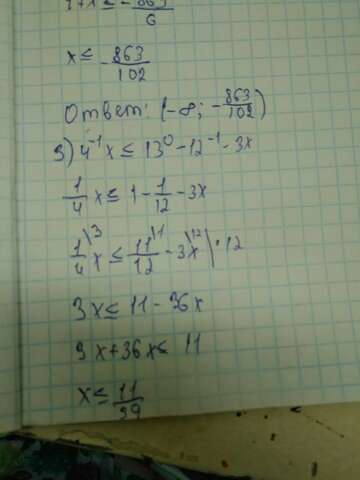 x ≤ - 863/102
Ответ: (-8; -863/102)
3) 4⁻¹x ≤ 13⁰ - 12⁻¹ - 3x
1/4 x ≤ 1 - 1/12 - 3x
1\3/4 x ≤ 11\1/12 - 3x\12 | · 12
3x ≤ 11 - 36x
3x + 36x ≤ 11
x ≤ 11/39